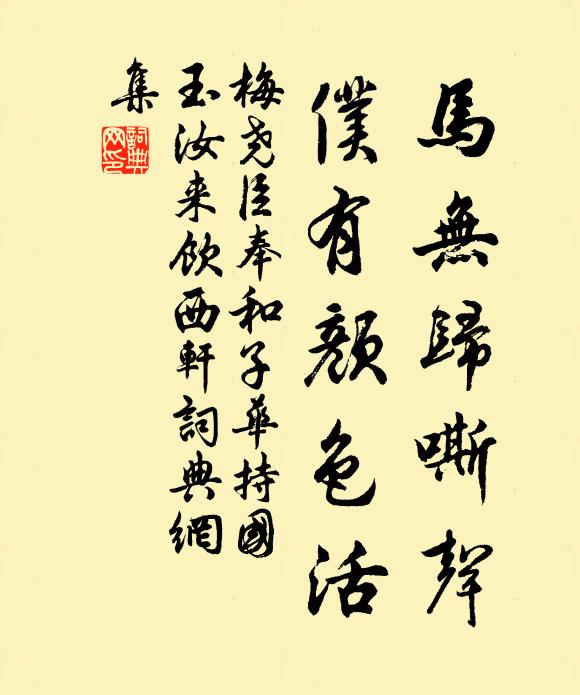 馬無歸嘶聲
僕有顏色活
梅尧臣奉和子華持國
玉汝来飲西軒詞典網
集
詞典
网印